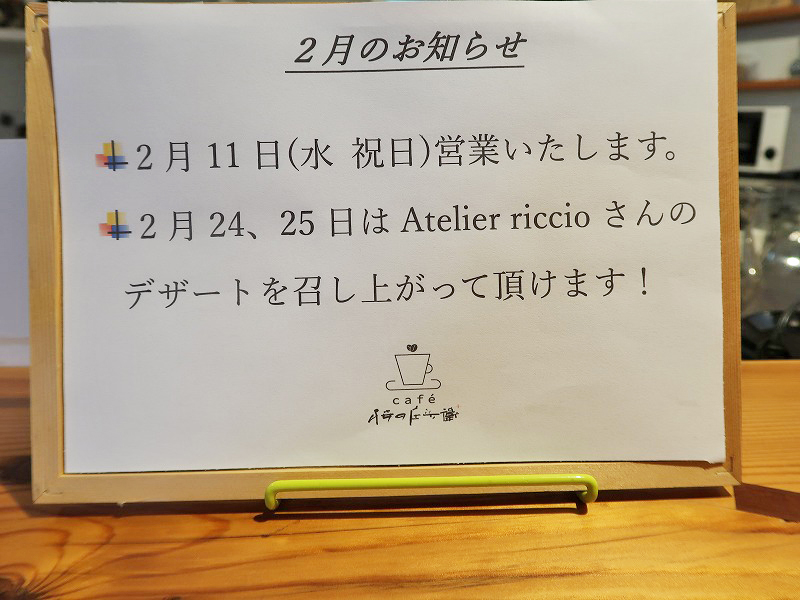 2月のお知らせ
2月11日(水 祝日)営業いたします。
2月24、25日はAtelier riccioさんの
デザートを召し上がって頂けます!
café